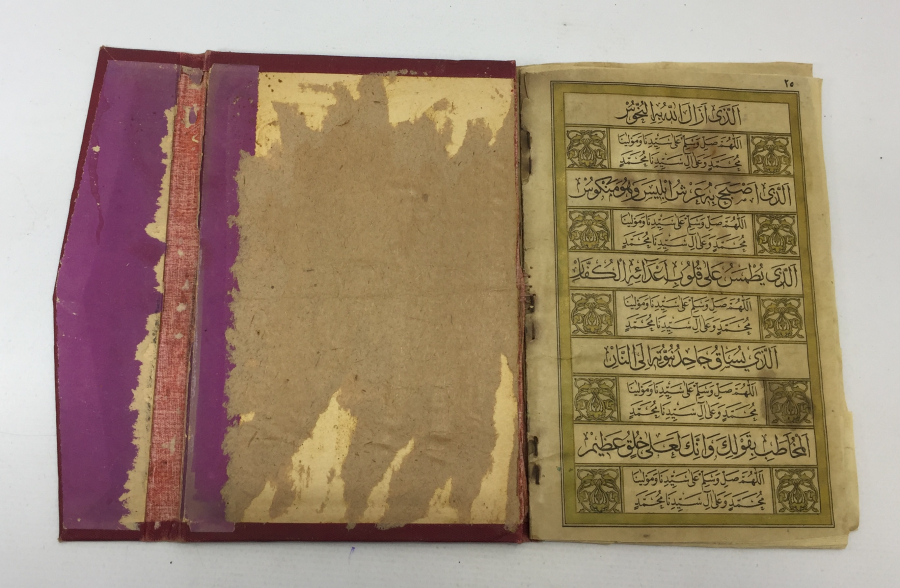 ٢٥
الَّذِي اَزَالَ اللّٰهُ بِهِ النُّحُوسُ
اَللّٰهُمَّ صَلِّ وَسَلِّمْ عَلٰى سَيِّدِنَا وَمَوْلٰينَا
مُحَمَّدٍ وَعَلٰى اٰلِ سَيِّدِنَا مُحَمَّدٍ
اَلَّذِي اَصْبَحَ بِهِ عَرْشُ اِبْلِيسَ وَهُوَ مَنْكُوسٌ
اَللّٰهُمَّ صَلِّ وَسَلِّمْ عَلٰى سَيِّدِنَا وَمَوْلٰينَا
مُحَمَّدٍ وَعَلٰى اٰلِ سَيِّدِنَا مُحَمَّدٍ
اَلَّذِي يُطْمَسُ عَلٰى قُلُوبِ اَعْدَائِهِ الْكُفَّارِ
اَللّٰهُمَّ صَلِّ وَسَلِّمْ عَلٰى سَيِّدِنَا وَمَوْلٰينَا
مُحَمَّدٍ وَعَلٰى اٰلِ سَيِّدِنَا مُحَمَّدٍ
اَلَّذِي يُسَاقُ جَاحِدُ نُبُوَّتِهِ اِلَى النَّارِ
اَللّٰهُمَّ صَلِّ وَسَلِّمْ عَلٰى سَيِّدِنَا وَمَوْلٰينَا
مُحَمَّدٍ وَعَلٰى اٰلِ سَيِّدِنَا مُحَمَّدٍ
اَلْمُخَاطَبِ بِقَوْلِكَ وَاِنَّكَ لَعَلٰى خُلُقٍ عَظِيمٍ
اَللّٰهُمَّ صَلِّ وَسَلِّمْ عَلٰى سَيِّدِنَا وَمَوْلٰينَا
مُحَمَّدٍ وَعَلٰى اٰلِ سَيِّدِنَا مُحَمَّدٍ